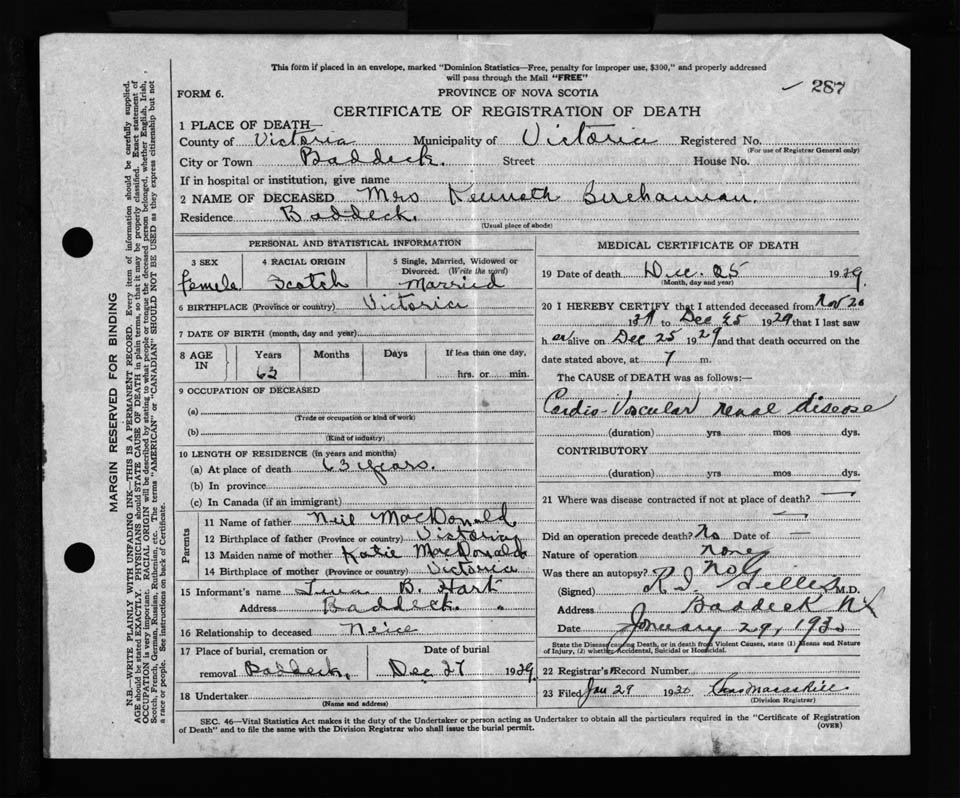 This form if placed in an envelope, marked "Dominion Statistics—Free, penalty for improper use, $300," and properly addressed
will pass through the Mail "FREE"
FORM 6.
PROVINCE OF NOVA SCOTIA
287
CERTIFICATE OF REGISTRATION OF DEATH
1 PLACE OF DEATH—
County of Victoria Municipality of Victoria Registered No.
(For use of Registrar General only)
City or Town Baddeck. Street House No.
If in hospital or institution, give name
2 NAME OF DECEASED Mrs Kenneth
Residence Baddeck.
(Usual place of abode)
PERSONAL AND STATISTICAL INFORMATION
3 SEX 4 RACIAL ORIGIN 5 Single, Married, Widowed or
Divorced. (Write the word)
Female Scotch Married
6 BIRTHPLACE (Province or country) Victoria
7 DATE OF BIRTH (month, day and year)
8 AGE IN Years Months Days If less than one day,
63 hrs. or min.
9 OCCUPATION OF DECEASED
(a)
(Trade or occupation or kind of work)
(b)
(Kind of industry)
10 LENGTH OF RESIDENCE (in years and months)
(a) At place of death 63 years.
(b) In province
(c) In Canada (if an immigrant)
Parents
11 Name of father Neil MacDonald
12 Birthplace of father (Province or country) Victoria
13 Maiden name of mother Katie MacDonald
14 Birthplace of mother (Province or country) Victoria
15 Informant's name B. Hart
Address Baddeck.
16 Relationship to deceased Neice
17 Place of burial, cremation or Date of burial
removal Baddeck, Dec 27 1929.
18 Undertaker
(Name and address)
MEDICAL CERTIFICATE OF DEATH
19 Date of death Dec. 25 1929.
(Month, day and year)
20 I HEREBY CERTIFY that I attended deceased from Nov 20
to Dec 25 1929 that I last saw
h er alive on Dec 25 1929 and that death occurred on the
date stated above, at 7 m.
The CAUSE OF DEATH was as follows:—
Cardio-Vascular renal disease
(duration) yrs mos dys.
CONTRIBUTORY
(duration) yrs mos dys.
21 Where was disease contracted if not at place of death? —
—
Did an operation precede death? No Date of —
Nature of operation none
Was there an autopsy? No
(Signed) M.D.
Address Baddeck NS
Date January 29, 1930
State the Disease causing Death, or in death from Violent Causes, state (1) Means and Nature
of Injury, (2) whether Accidental, Suicidal or Homicidal.
22 Registrar's Record Number
23 Filed Jan 29 1930
(Division Registrar)
SEC. 46—Vital Statistics Act makes it the duty of the Undertaker or person acting as Undertaker to obtain all the particulars required in the "Certificate of Registration
of Death" and to file the same with the Division Registrar who shall issue the burial permit.
(OVER)
MARGIN RESERVED FOR BINDING
N.B.—WRITE PLAINLY WITH UNFADING INK—THIS IS A PERMANENT RECORD. Every item of information should be carefully supplied.
AGE should be stated EXACTLY. PHYSICIANS should STATE CAUSE OF DEATH in plain terms, so that it may be properly classified. Exact statement of
OCCUPATION is very important. RACIAL ORIGIN will be described by stating to what people or tongue the deceased person belonged, whether English, Irish,
Scotch, French, German, Russian, Ruthenian, etc. The terms "AMERICAN" or "CANADIAN" SHOULD NOT BE USED as they express citizenship but not
a race or people. See instructions on back of Certificate.